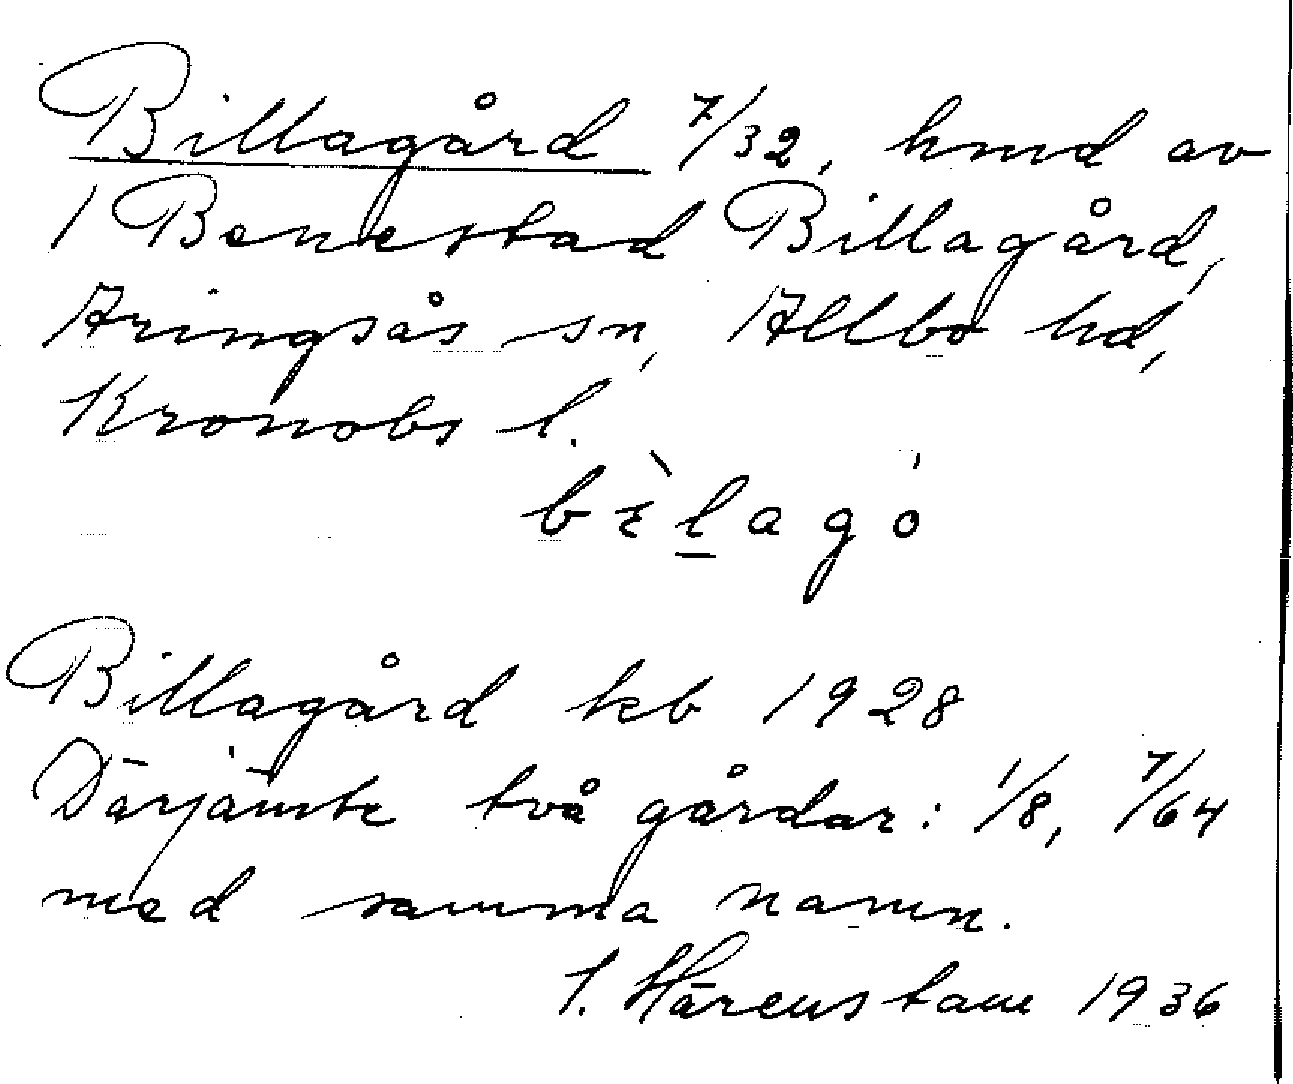 Billagård 7/32, hmd av
1 Benestad Billagård,
Aringsås sn, Allbo hd,
Kronobs l.
bèlagó
Billagård kb 1928
Därjämte två gårdar: 1/8, 7/64
med samma namn.
I. Härenstam 1936